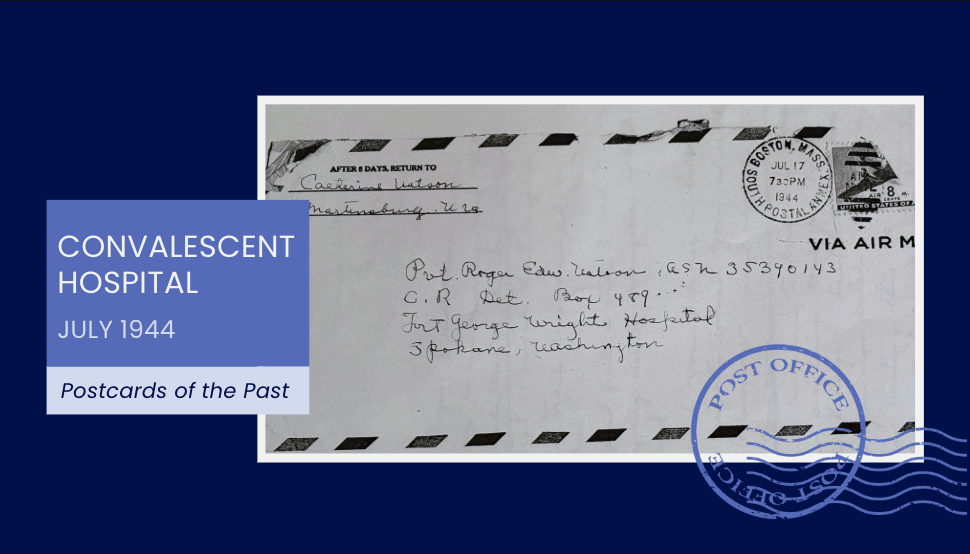 CONVALESCENT
HOSPITAL
JULY 1944
Postcards of the Past
AFTER 5 DAYS, RETURN TO
Catherine Watson
Martinsburg, W.Va
SOUTH POSTAL ANNEX BOSTON, MASS.
JUL 17
730PM
1944
AIR
8
CENTS
UNITED STATES OF A
VIA AIR M
Pvt. Roger Edw. Watson, ASN 35390143
C.R Det. Box 489
Fort George Wright Hospital
Spokane, Washington
POST OFFICE
POST OFFICE